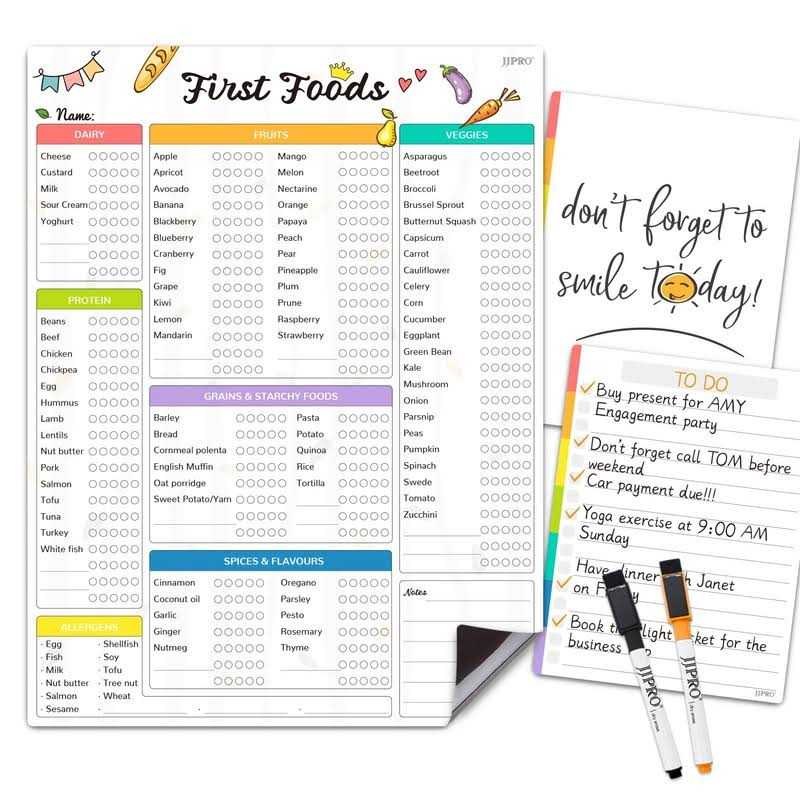 First Foods
JJPRO
Name:
DAIRY
Cheese
Custard
Milk
Sour Cream
Yoghurt
PROTEIN
Beans
Beef
Chicken
Chickpea
Egg
Hummus
Lamb
Lentils
Nut butter
Pork
Salmon
Tofu
Tuna
Turkey
White fish
ALLERGENS
· Egg
· Fish
· Milk
· Nut butter
· Salmon
· Sesame
· Shellfish
· Soy
· Tofu
· Tree nut
· Wheat
FRUITS
Apple
Apricot
Avocado
Banana
Blackberry
Blueberry
Cranberry
Fig
Grape
Kiwi
Lemon
Mandarin
Mango
Melon
Nectarine
Orange
Papaya
Peach
Pear
Pineapple
Plum
Prune
Raspberry
Strawberry
GRAINS & STARCHY FOODS
Barley
Bread
Cornmeal polenta
English Muffin
Oat porridge
Sweet Potato/Yam
Pasta
Potato
Quinoa
Rice
Tortilla
SPICES & FLAVOURS
Cinnamon
Coconut oil
Garlic
Ginger
Nutmeg
Oregano
Parsley
Pesto
Rosemary
Thyme
VEGGIES
Asparagus
Beetroot
Broccoli
Brussel Sprout
Butternut Squash
Capsicum
Carrot
Cauliflower
Celery
Corn
Cucumber
Eggplant
Green Bean
Kale
Mushroom
Onion
Parsnip
Peas
Pumpkin
Spinach
Swede
Tomato
Zucchini
Notes
don't forget to
smile today!
TO DO
Buy present for AMY
Engagement party
Don't forget call TOM before
weekend
Car payment due!!!
Yoga exercise at 9:00 AM
Sunday
Have dinner Janet
on
Book the for the
business
JJPRO
JJPRO
dry erase
JJPRO
dry erase